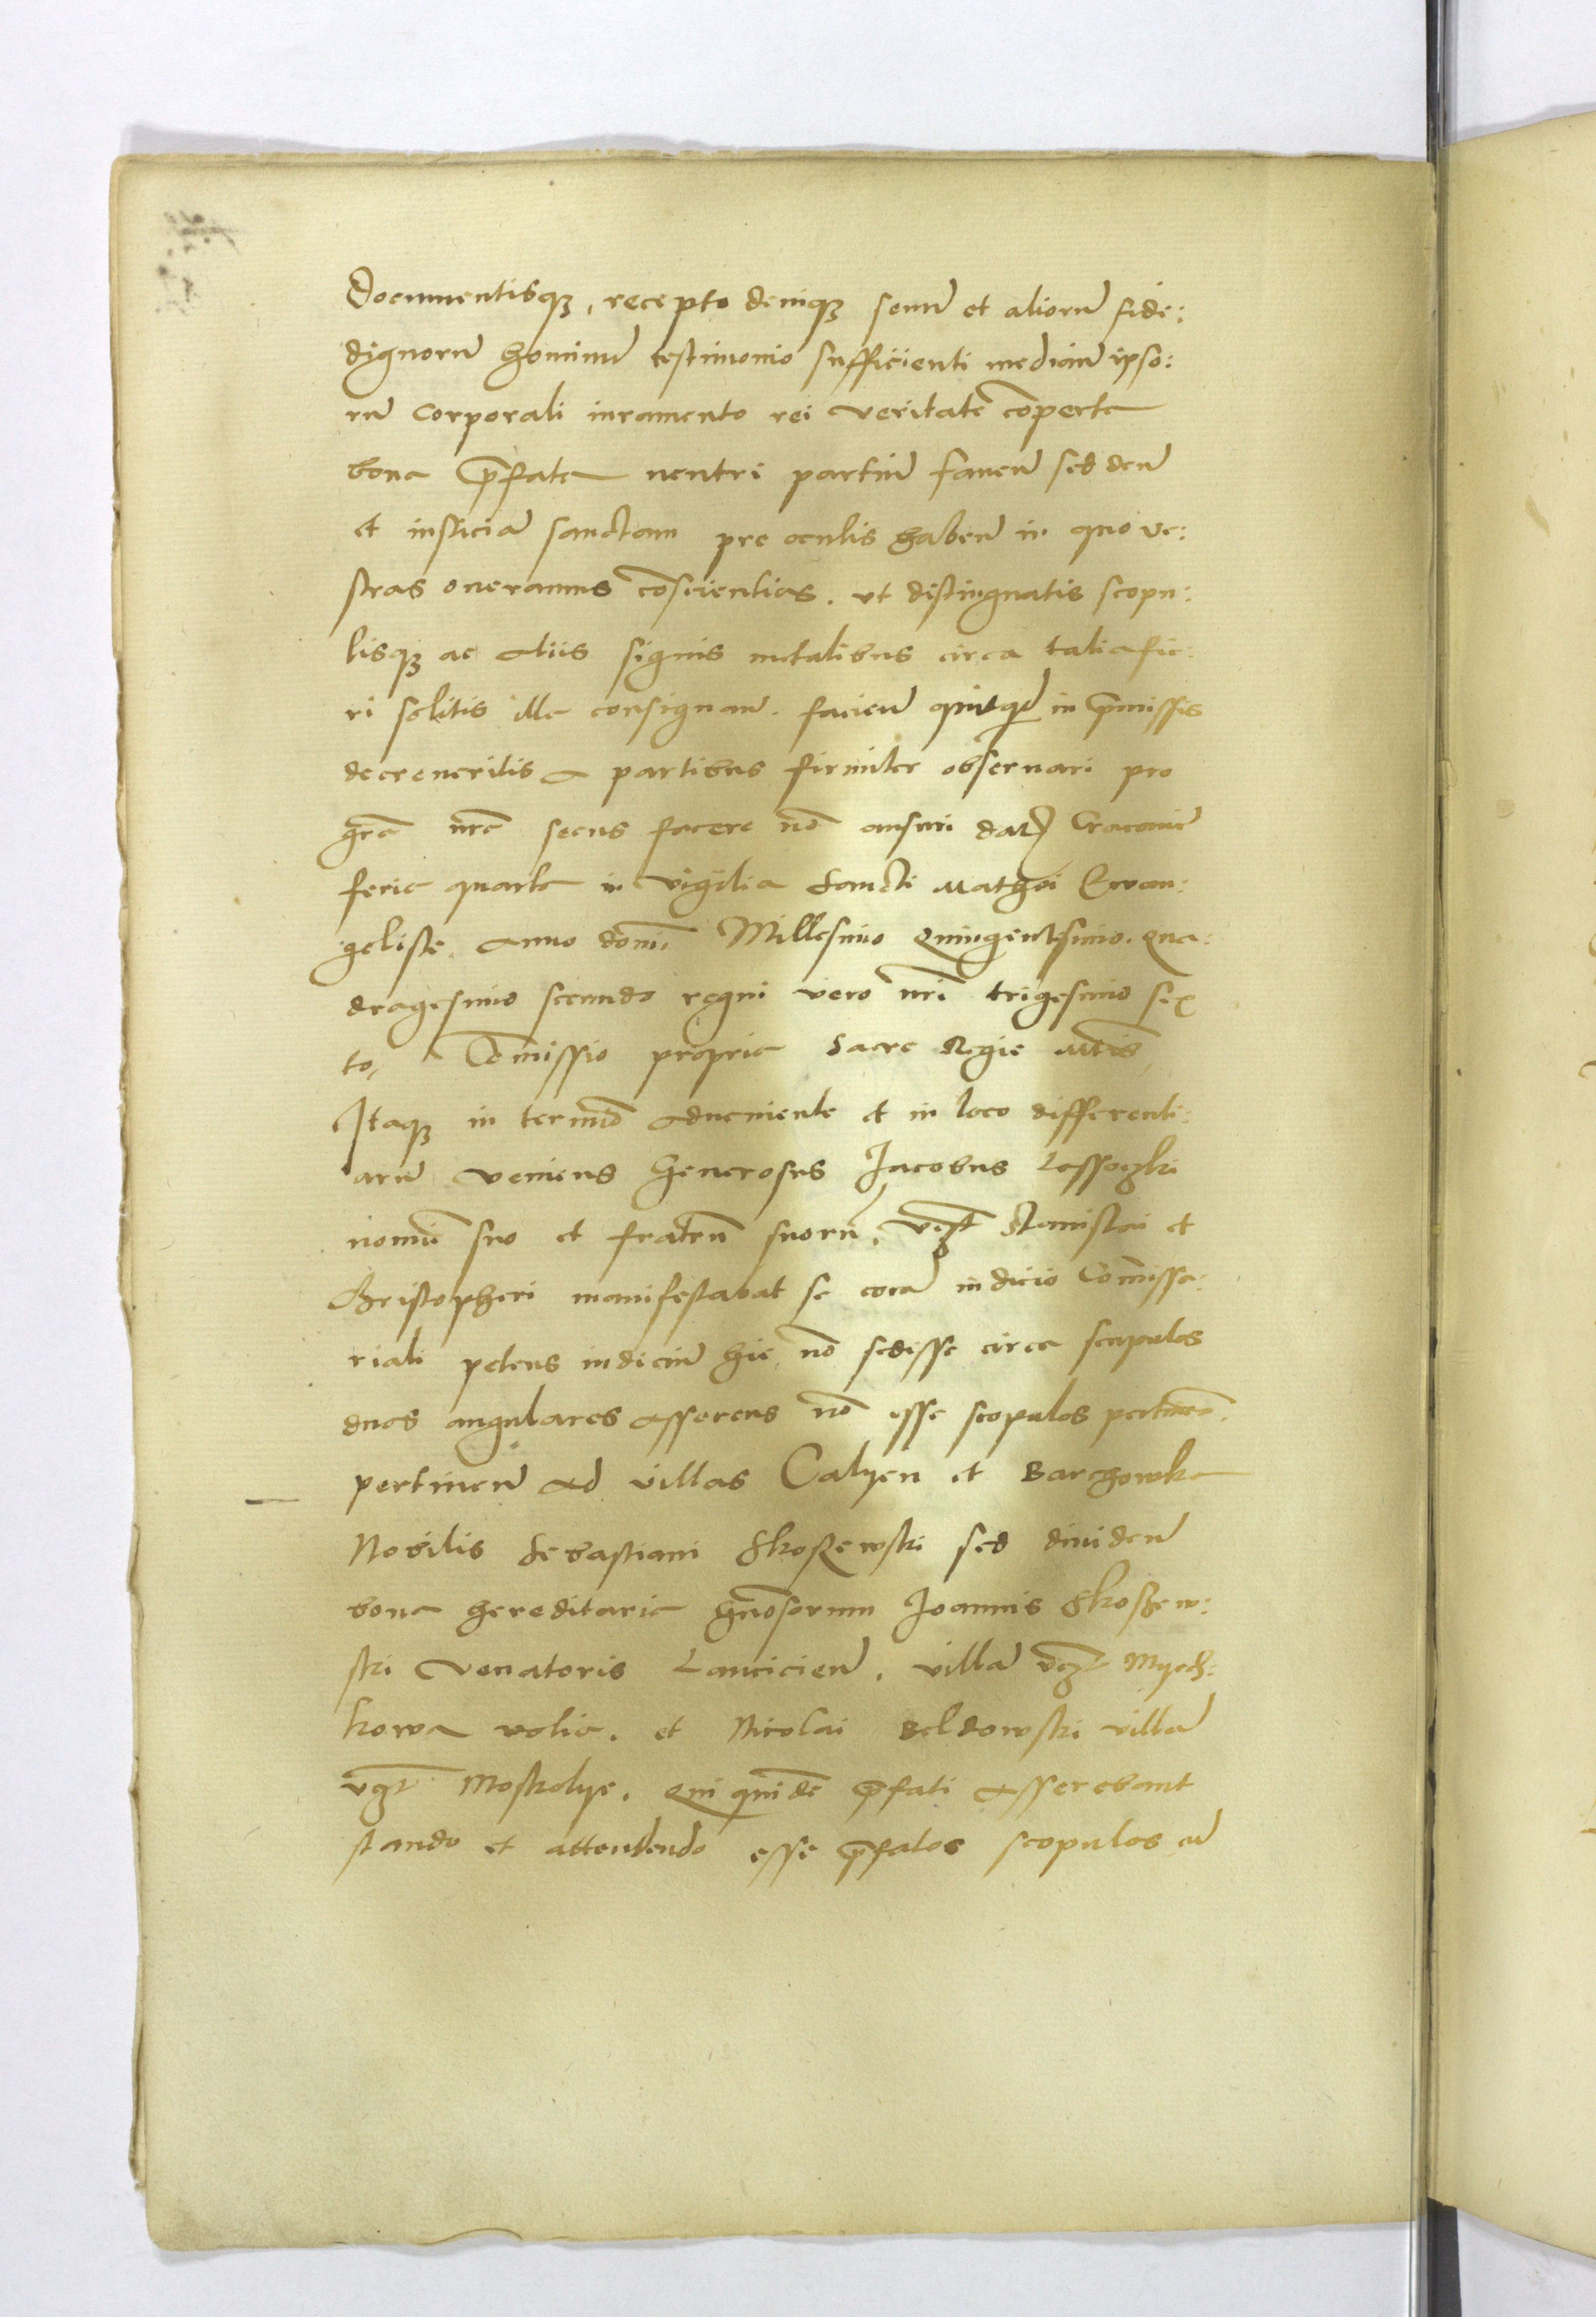 Documentisq₃, recepto deniq₃ senuꝫ et aliorū fide:
dignorū hominū testimonio sufficienti mediañ ipso:
rū corporali iuramento rei veritate cōperta
bona p̄fata neutri partiū faueñ sed deū
et iusticiā sanctam pre oculis habeñ in quo ve:
stras oneramus cōscientias. ut distinguatis scopu:
lisq₃ ac aliis signis metalibus circa talia fie:
ri solitis illa consignañ. facieñ quitqđ in p̄missis
decreueritis a partibus firmiter obseruari pro
gr̄a nr̄a secus facere nō ausuri dat̄ Cracouiē
feria quarta in vigilia Sancti Mathei Ewan:
geliste. Anno domī Millesimo Quingentesimo. Qua:
dragesimo secundo regni vero nr̄i trigesimo sex
to, Cōmissio propria Sacre Regie Mt̄is,
Itaq₃ in termīo adueniente et in loco differenti:
arū veniens Generosus Jacobus Lassoczki
nomīe suo et fratrū suorū, vꝫt Stanislai et
Christopheri manifestabat se corā iudicio Commissa:
riali petens iudiciū hic nō sedisse circa scopulos
duos angulares asserens nō esse scopulos
pertineñ ad villas Calyen et Barchowka
Nobilis Sebastiani Skoszewski sed diuideñ
bona hereditaria gn̄osorum Joannis Skoszew:
ski Venatoris Lancicieñ. villā vꝫt Myech:
kowa volia. et Nicolai Beldowski villā
vꝫt Moskolye. Qui quidē p̄fati asserebant
stando et attendendo esse p̄fatos scopulos cū